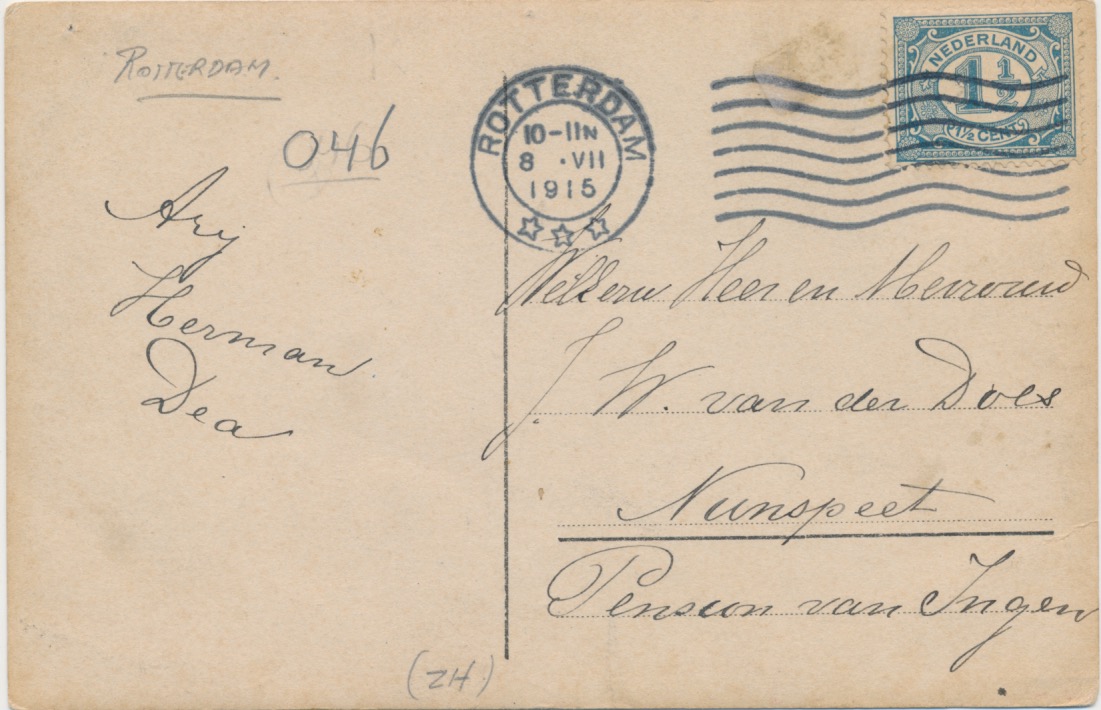 ROTTERDAM.
046
Ary
Herman
Dea
(ZH.)
ROTTERDAM
10-11N
8 ·VII
1915
NEDERLAND
1 1/2
1/2 CENT
J. W. van der Does
Nunspeet
Pension van Ingen
Heer en Mevrouw